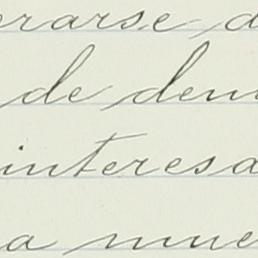 rarse a
de den
interesa
a mue